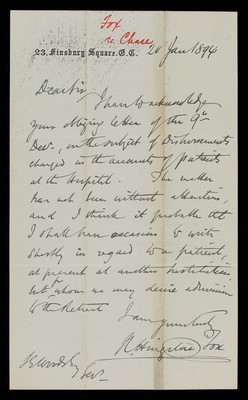 Fox
re Chase
23, Finsbury Square, E.C. 20 Jan 1894
Dear Sir
I have to acknowledge
your obliging letter of the 9th
Decr., on the subject of Disbursements
charged in the accounts of patients
at the Hospital. The matter
has not been without attention,
and I think it probable that
I shall have occasion to write
shortly in regard to a patient,
at present at another Institution
but whom we may desire admission
to the Retreat
I am yours truly
R. Hingston Fox
Secy